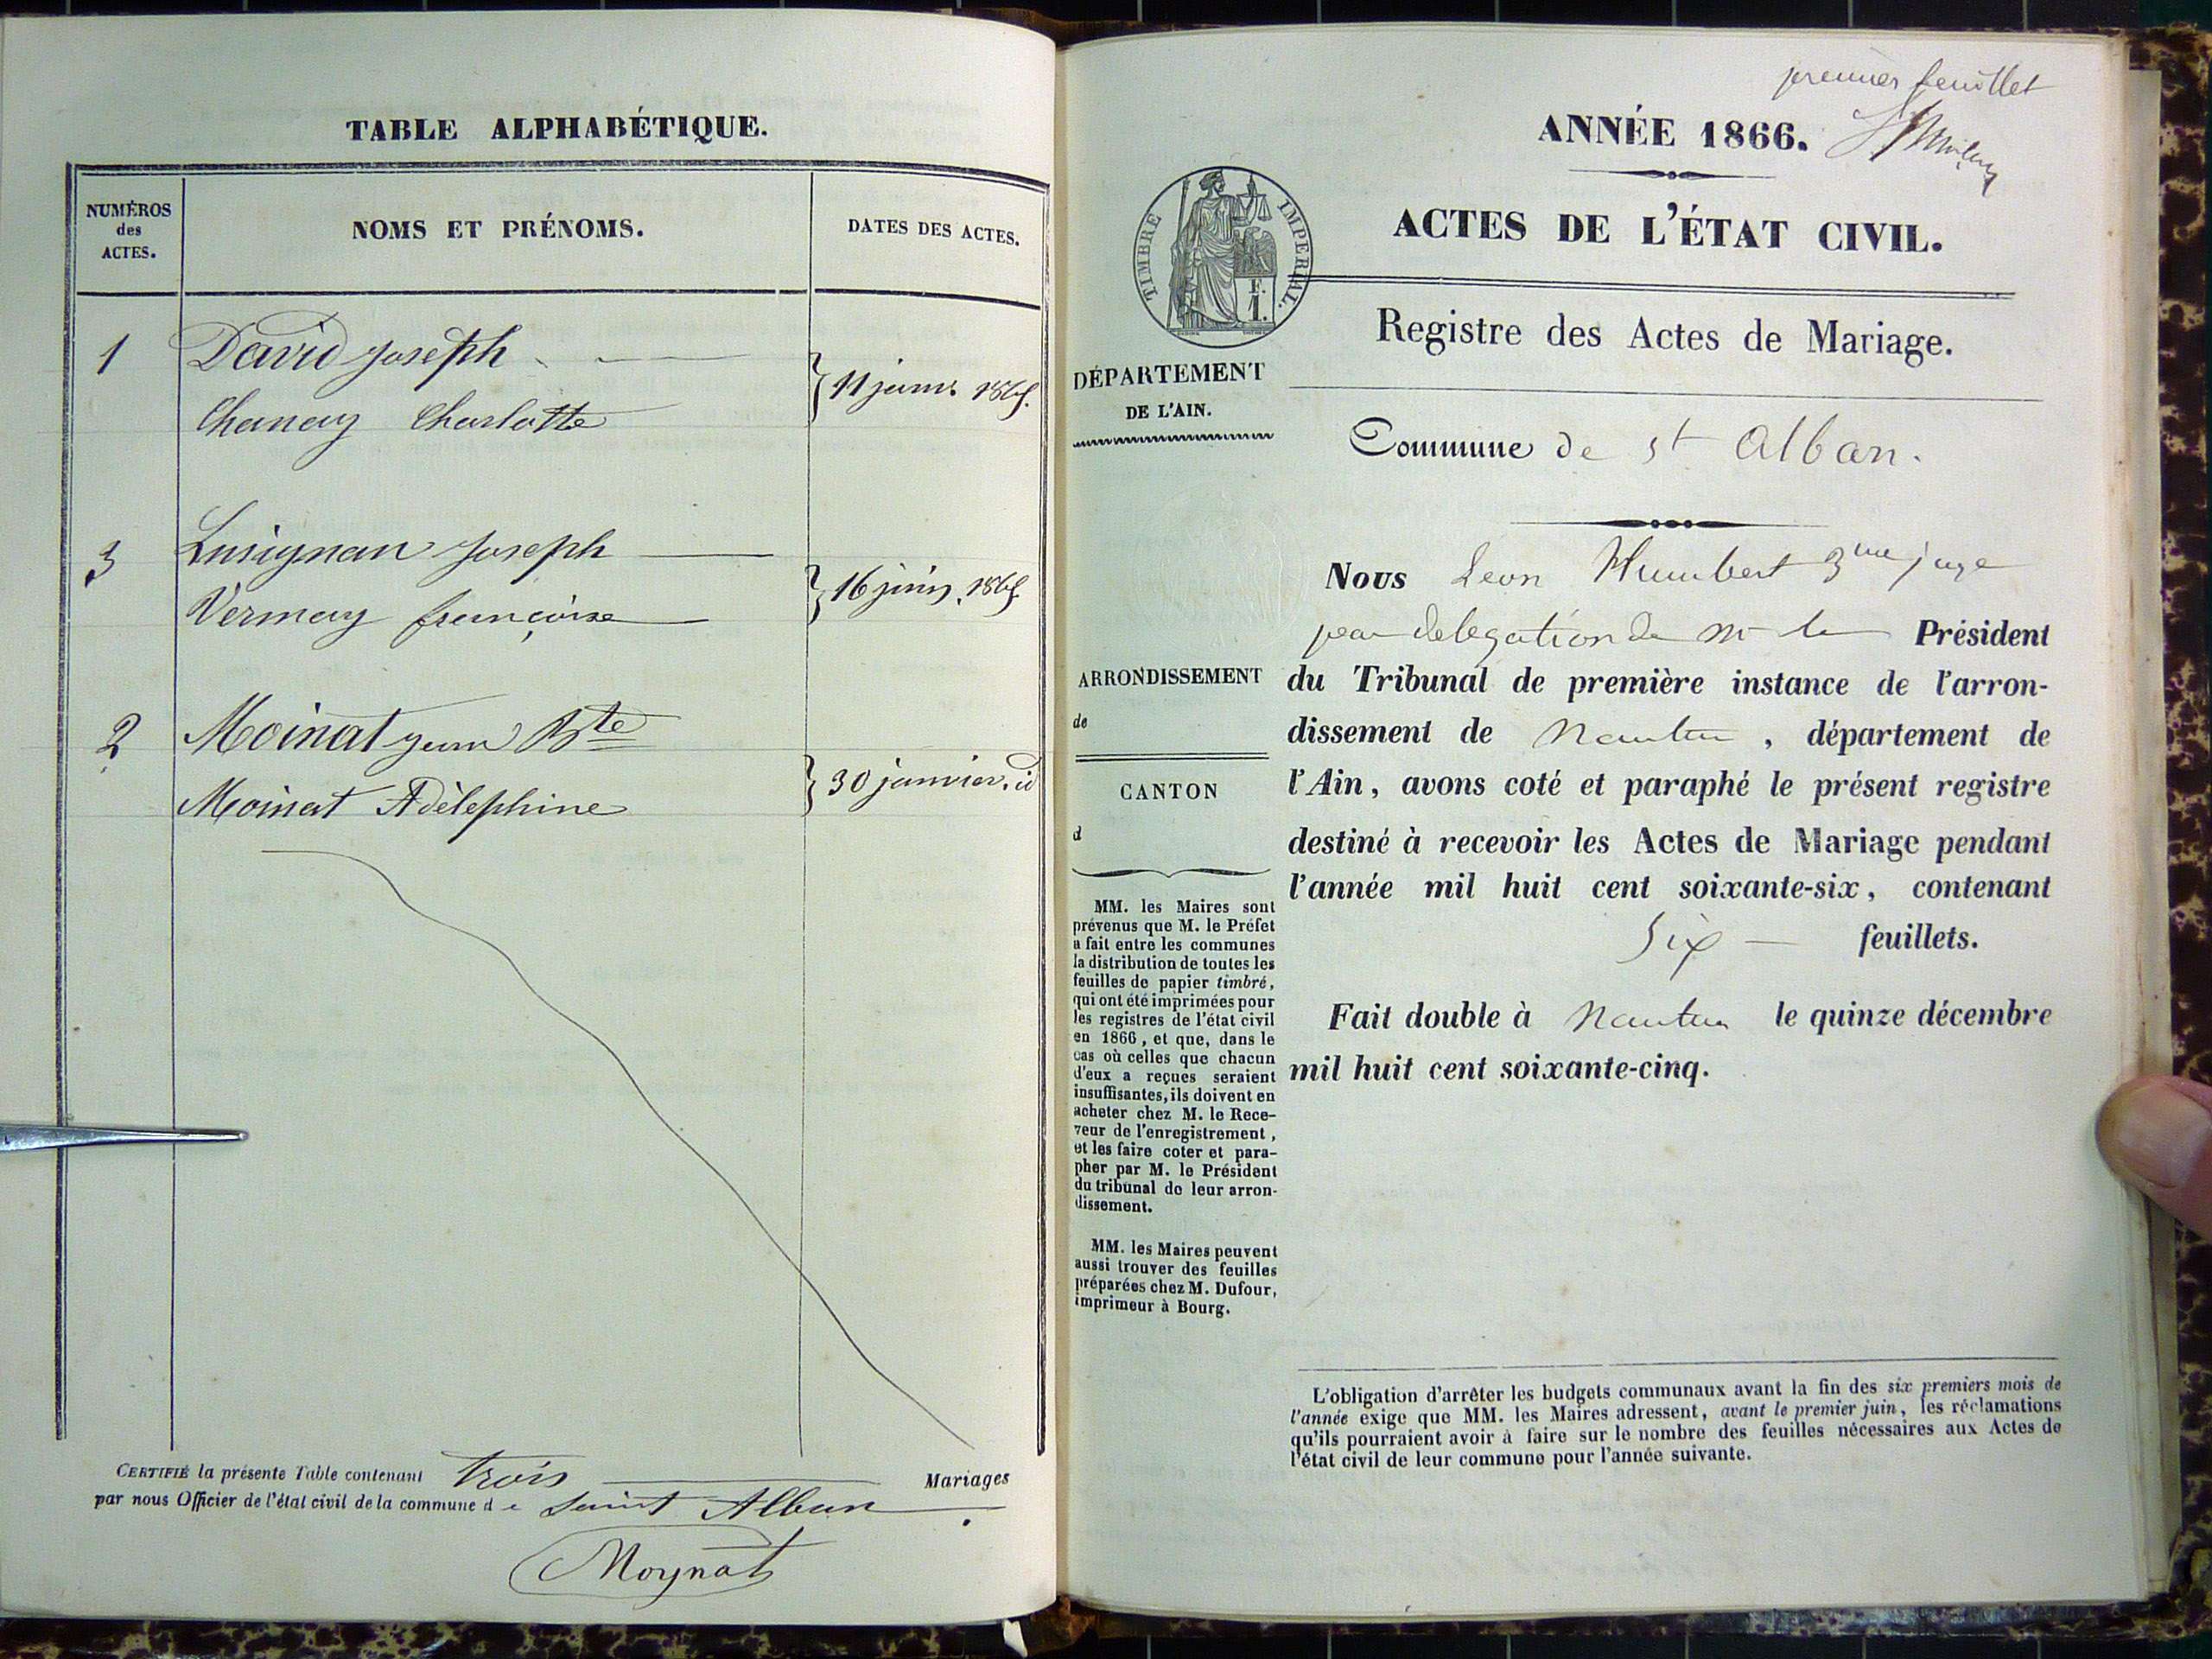 TABLE ALPHABÉTIQUE.
NUMÉROS
des
ACTES.
NOMS ET PRÉNOMS.
DATES DES ACTES.
1
David Joseph
Chanay Charlotte
11 janv. 1865.
3
Lusignan Joseph
Vermay françoise
16 juin. 1865
2
Moinat jean Bte
Moinat Adèlephine
30 janvier. id
CERTIFIÉ la présente Table contenant trois Mariages
par nous Officier de l'état civil de la commune de Saint Alban.
Moynat
premier feuillet
ANNÉE 1866.
TIMBRE IMPERIAL.
F.
1.
ACTES DE L'ÉTAT CIVIL.
Registre des Actes de Mariage.
DÉPARTEMENT
DE L'AIN.
Commune de St Alban.
ARRONDISSEMENT
de
CANTON
d
MM. les Maires sont
prévenus que M. le Préfet
a fait entre les communes
la distribution de toutes les
feuilles de papier timbré,
qui ont été imprimées pour
les registres de l'état civil
en 1866, et que, dans le
cas où celles que chacun
d'eux a reçues seraient
insuffisantes, ils doivent en
acheter chez M. le Rece-
veur de l'enregistrement,
et les faire coter et para-
pher par M. le Président
du tribunal de leur arron-
dissement.
MM. les Maires peuvent
aussi trouver des feuilles
préparées chez M. Dufour,
imprimeur à Bourg.
Nous Leon Humbert 3me juge
par delegation de Mr le Président
du Tribunal de première instance de l'arron-
dissement de Nantua, département de
l'Ain, avons coté et paraphé le présent registre
destiné à recevoir les Actes de Mariage pendant
l'année mil huit cent soixante-six, contenant
Six feuillets.
Fait double à Nantua le quinze décembre
mil huit cent soixante-cinq.
L'obligation d'arrêter les budgets communaux avant la fin des six premiers mois de
l'année exige que MM. les Maires adressent, avant le premier juin, les réclamations
qu'ils pourraient avoir à faire sur le nombre des feuilles nécessaires aux Actes de
l'état civil de leur commune pour l'année suivante.